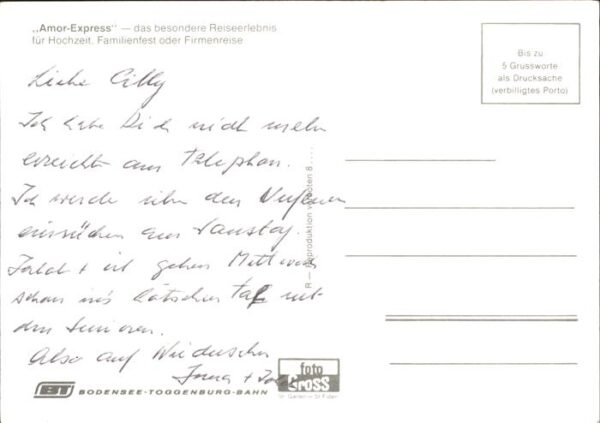 „Amor-Express“ — das besondere Reiseerlebnis
für Hochzeit, Familienfest oder Firmenreise
Bis zu
5 Grussworte
als Drucksache
(verbilligtes Porto)
Liebe Cilly
Ich habe Dich nicht mehr
erreicht am Telephon.
Ich werde über den Nufenen
einrücken am Samstag.
+ ich gehen Mittwoch
schon ins Lötschental mit
den Senioren.
Also auf Wiedersehen
Irma +
R — Reproduktion verboten 8....
foto
Gross
St. Gallen — St. Fiden
BT BODENSEE-TOGGENBURG-BAHN